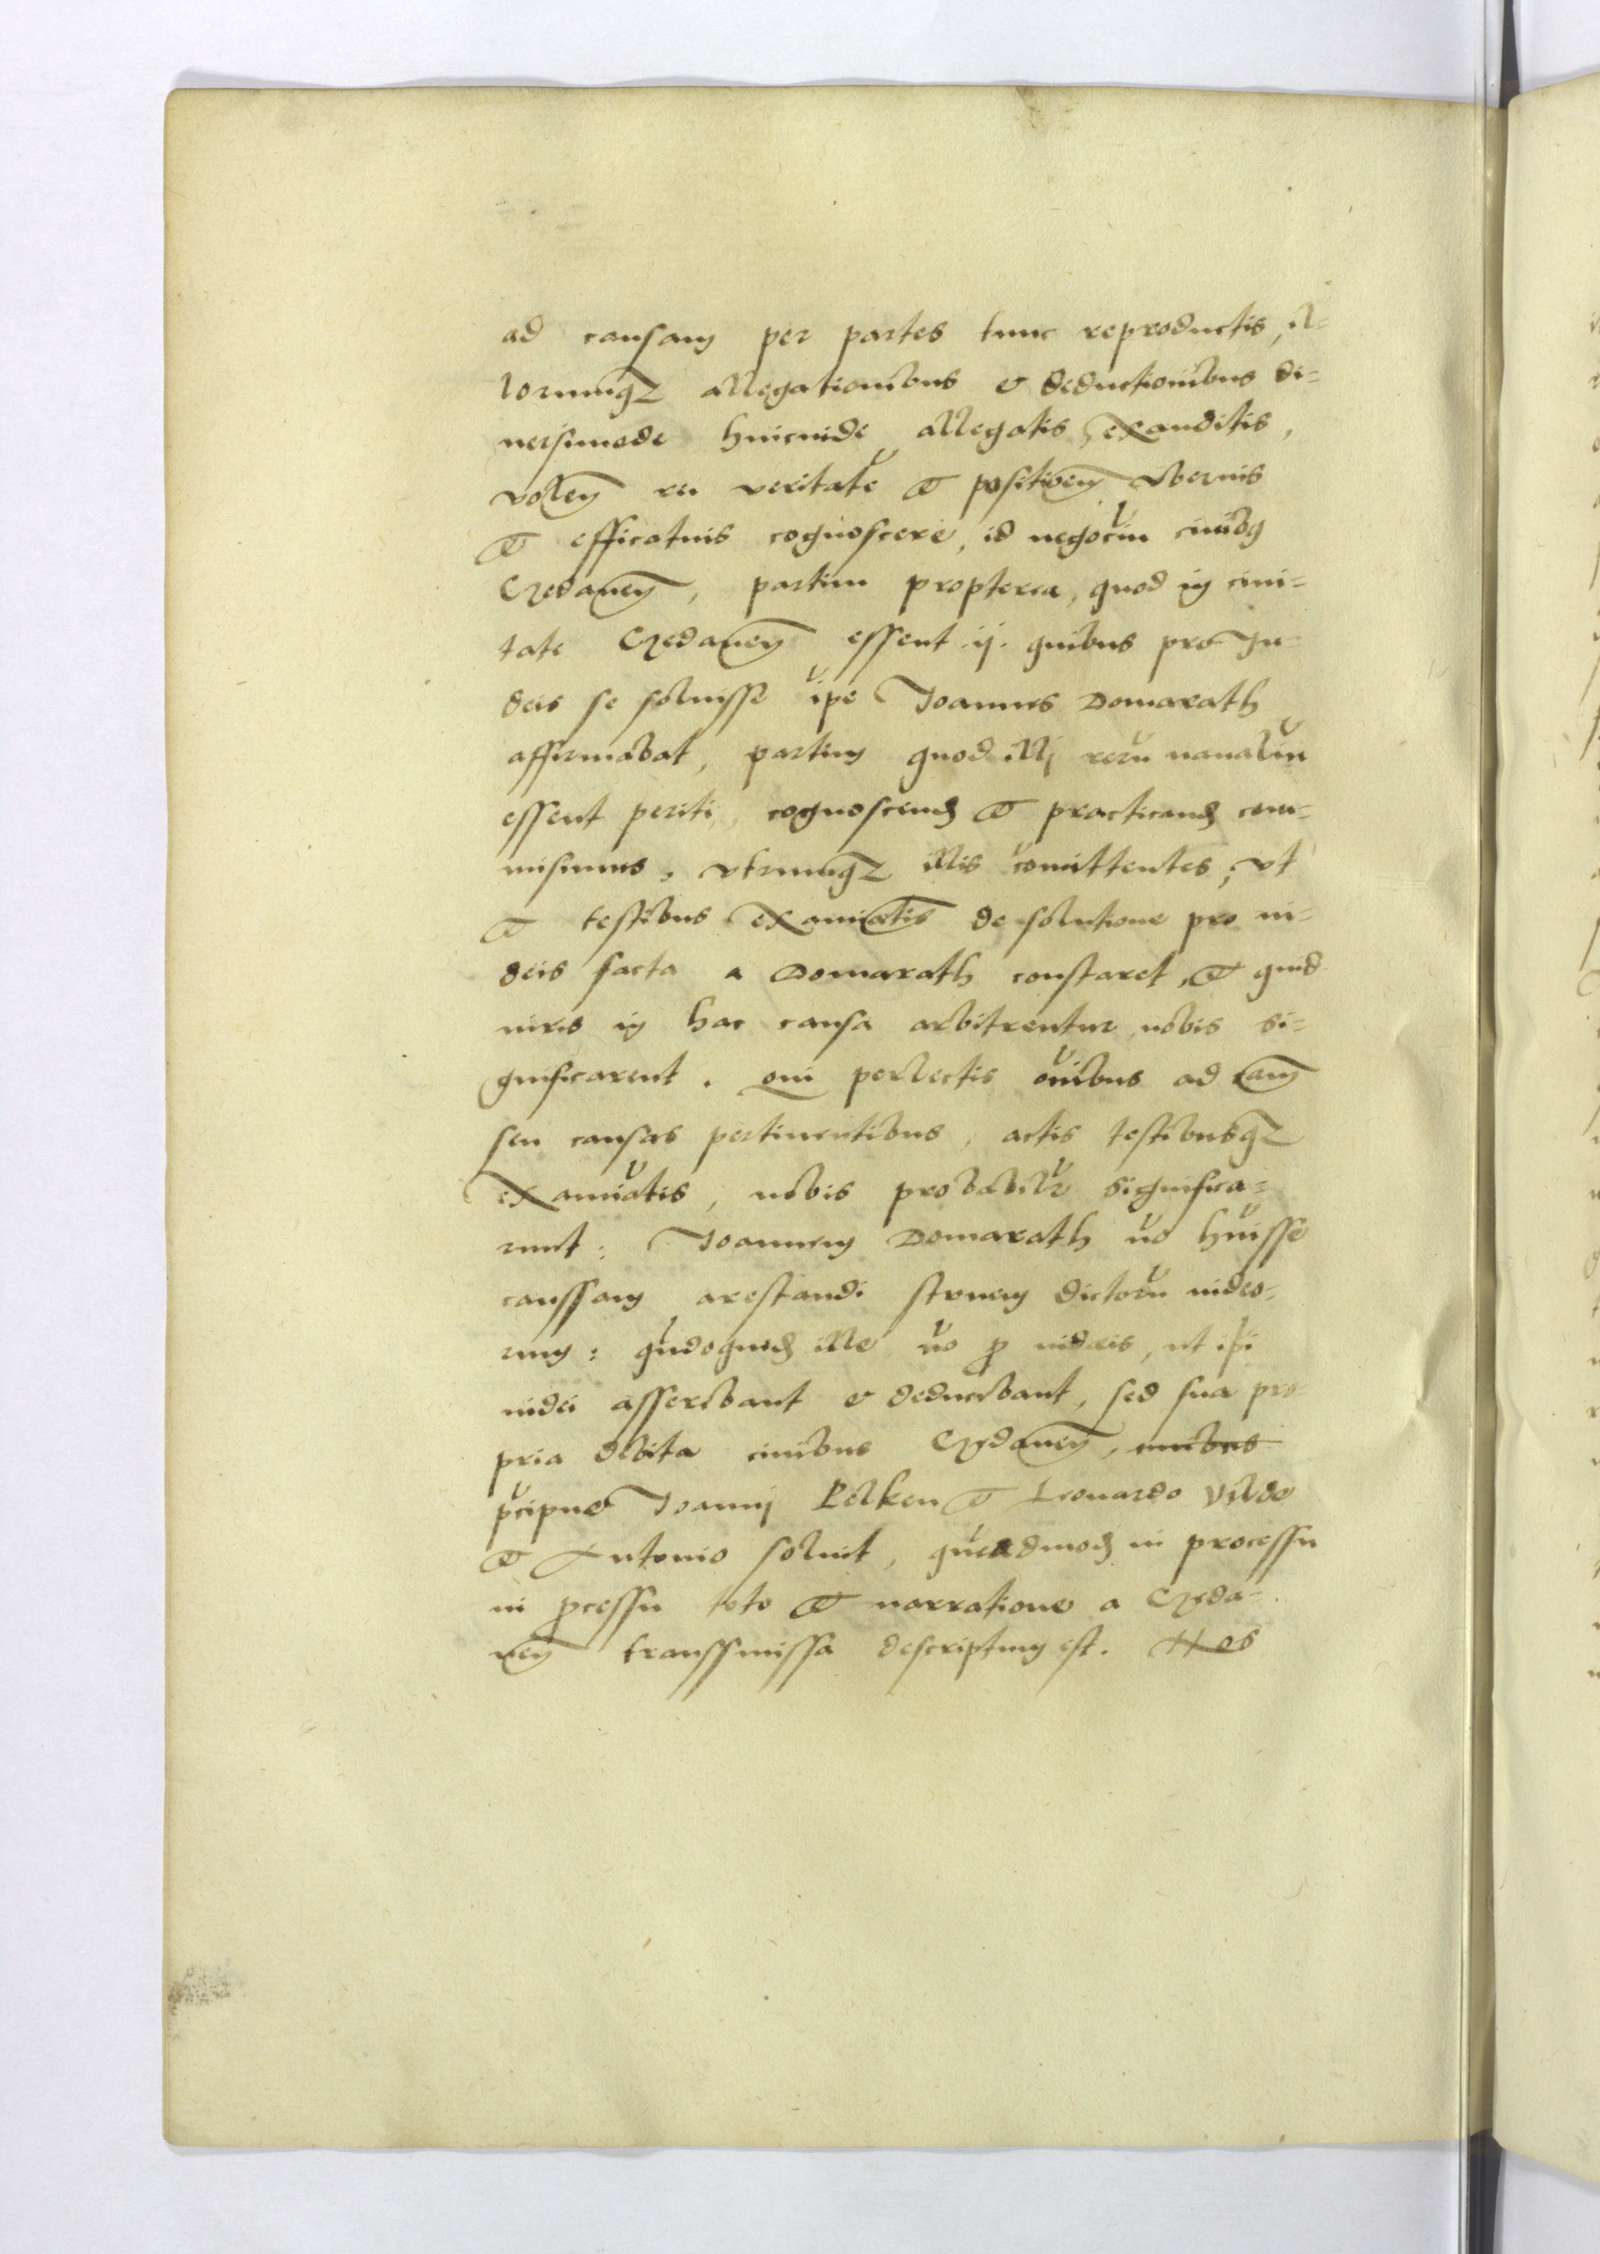 ad causam per partes tunc reproductis, il-
lorumq3 allegationibus & deductionibus di-
uersimode hincinde allegatis, exauditis,
volen rei veritatē et positionem vberius
et efficatius cognoscere, id negociū ciuibq
Gedanen, partim propterea, quod in ciui-
tate Gedanen essent ij. quibus pro Iu-
deis se soluisse ipē Joannes Domarath
affirmabat, partim quod illj rerū naualiū
essent periti, cognoscend et practicand com-
misimus, vtrumq3 illis cōmittentes, vt
et testibus examiatis de solutione pro iu-
deis facta a Domarath constaret, et quid
iuris in hac causa arbitrentur nobis si-
gnificarent. Qui perlectis ōnibus ad cam
seu causas pertinentibus, actis testibusq3
examīatis, nobis probabilr significa-
runt: Joannem Domarath nō hūisse
caussam arestandi struem dictorū iudeo-
rum: qūdoquid ille nō p iudeis, ut ipi
iudei asserebant & deducebant, sed sua pro-
pria debita ciuibus Gedanen, ciuibus
pcipue Joannj Pelken et Leonardo Vilde
et Antonio soluit, quēadmod in processu
in pcessu toto et narratione a Geda-
nen transsmissa descriptum est. Nos